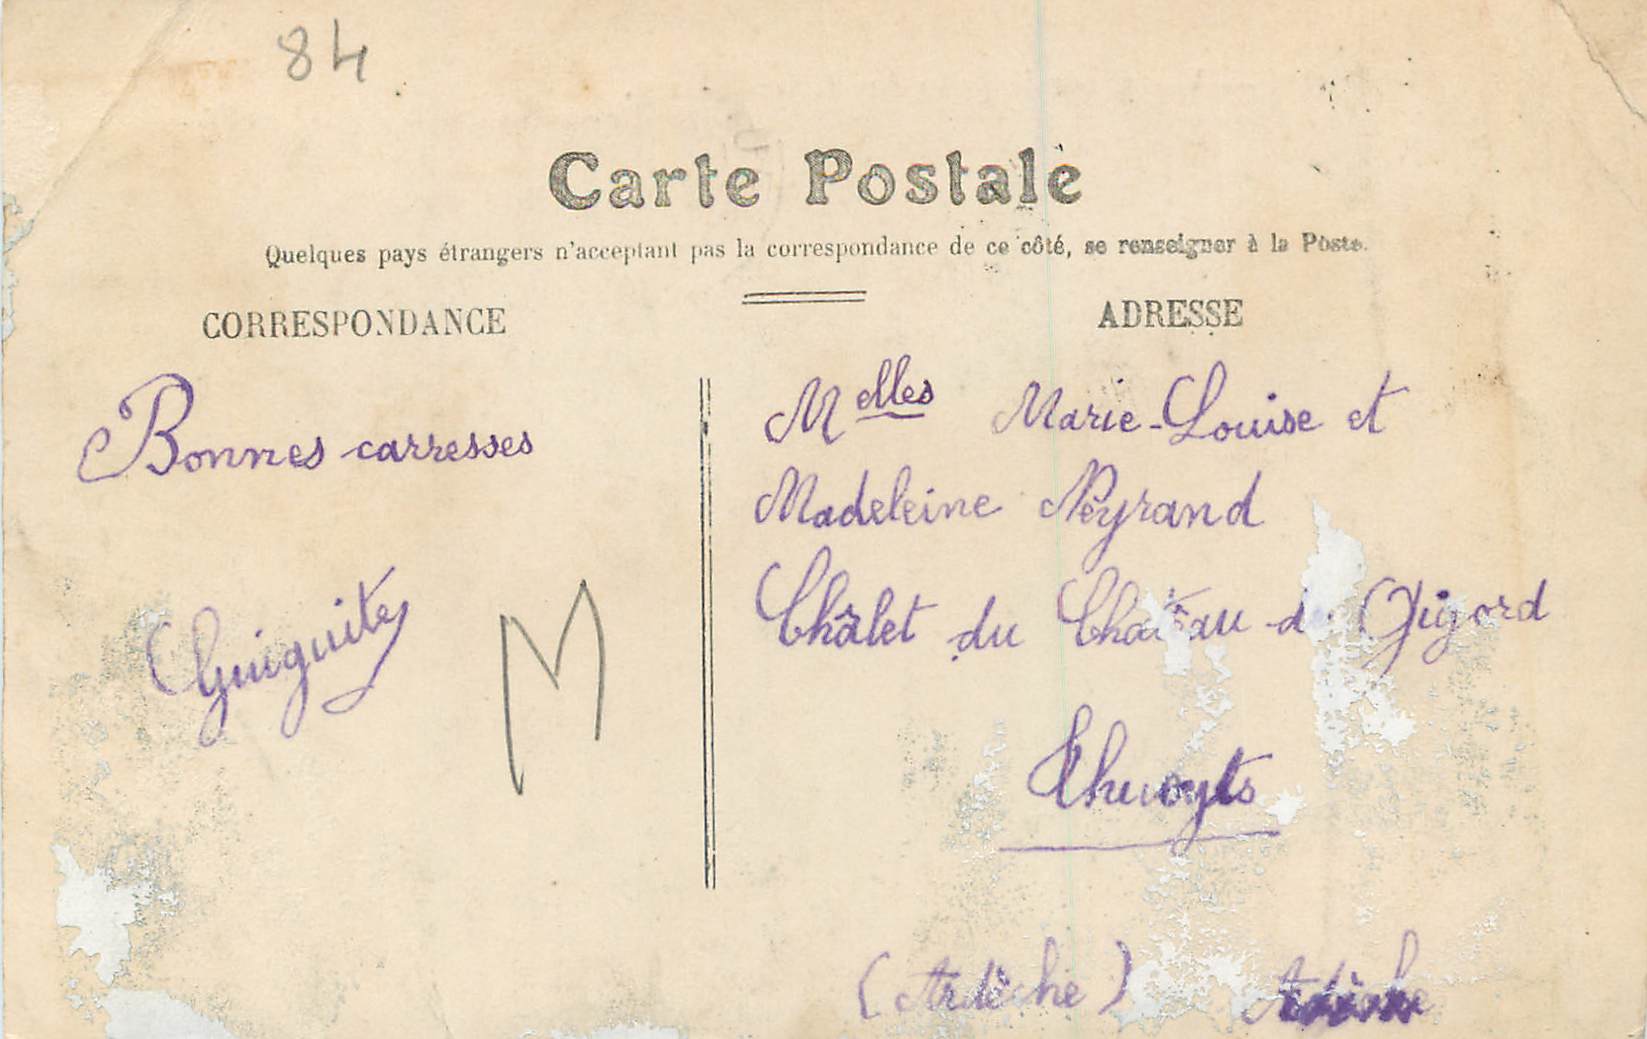 84
Carte Postale
Quelques pays étrangers n'acceptant pas la correspondance de ce côté, se renseigner à la Poste.
CORRESPONDANCE
ADRESSE
Bonnes carresses
Guiguite
M
Melles Marie-Louise et
Madeleine Peyrand
Châlet du Château de Gigord
Thueyts
(Ardèche) Ardèche